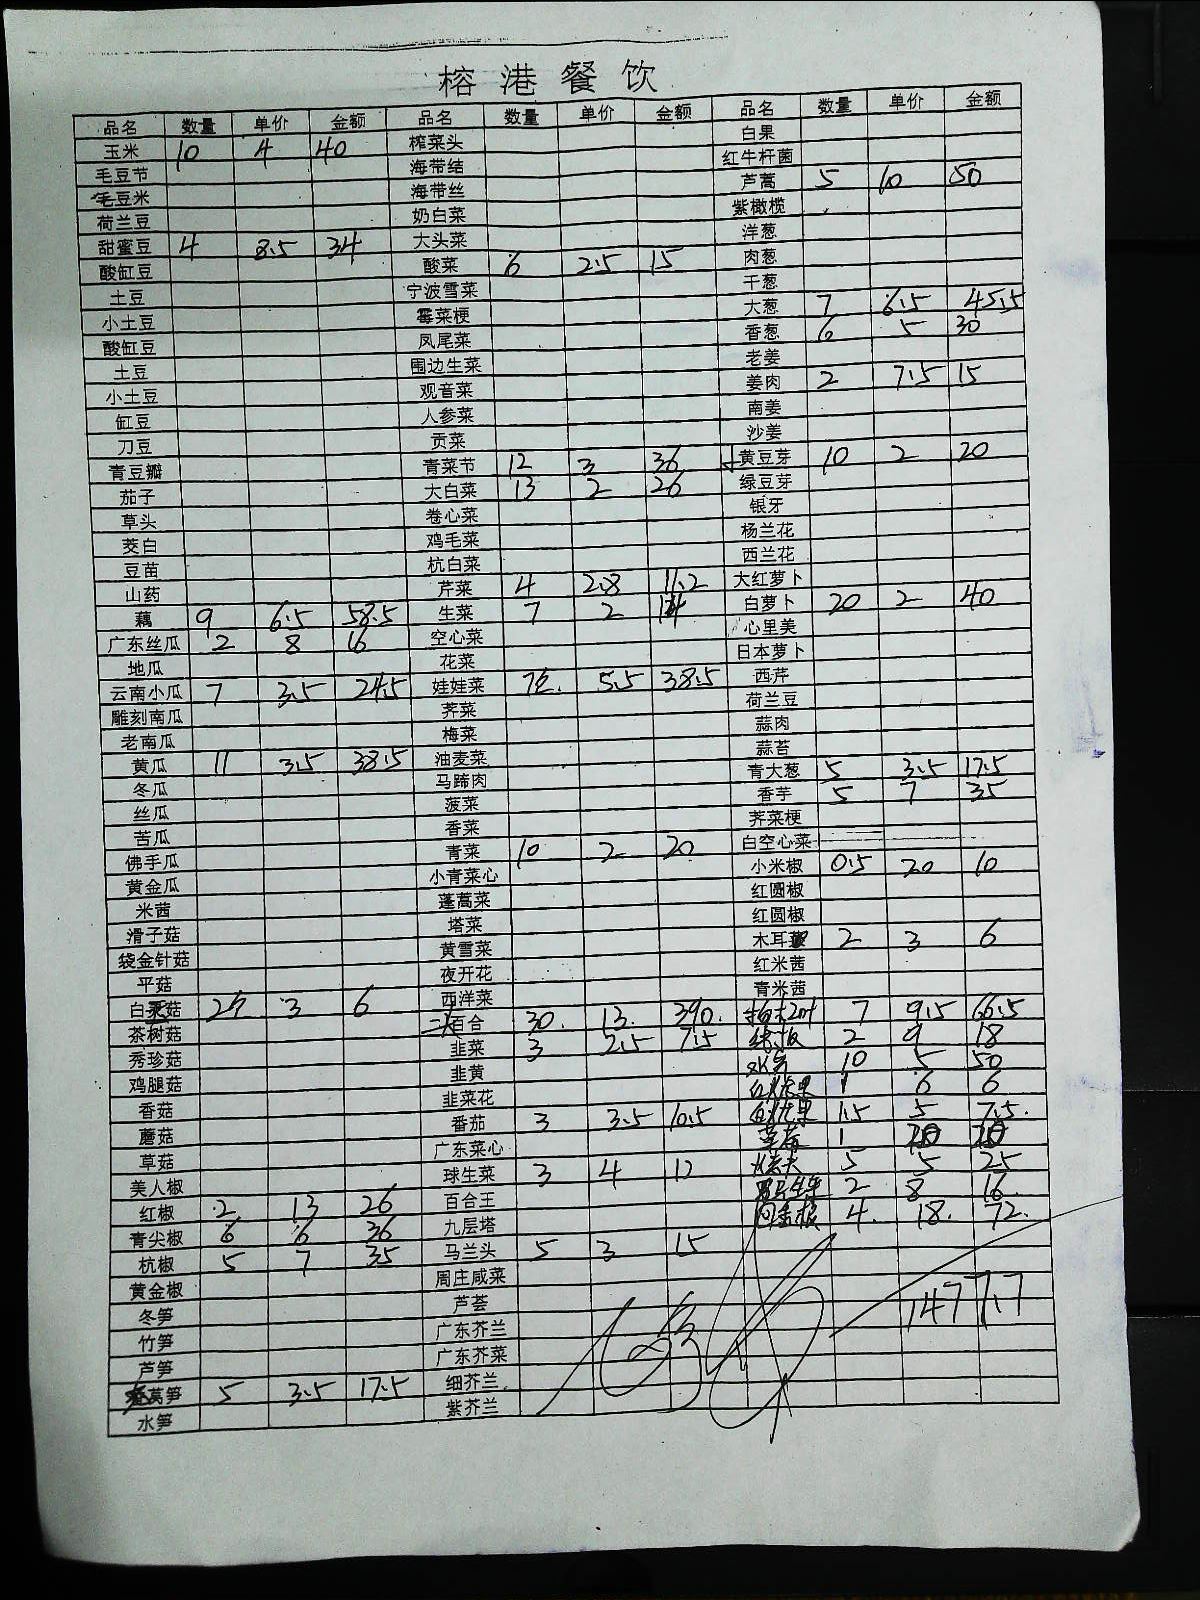 榕港餐饮
品名 数量 单价 金额 品名 数量 单价 金额 品名 数量 单价 金额
玉米 10 4 40 榨菜头 白果
毛豆节 海带结 红牛杆菌
毛豆米 海带丝 芦蒿 5 10 50
荷兰豆 奶白菜 紫橄榄
甜蜜豆 4 8.5 34 大头菜 洋葱
酸缸豆 酸菜 6 2.5 15 肉葱
土豆 宁波雪菜 干葱
小土豆 霉菜梗 大葱 7 6.5 45.5
酸缸豆 凤尾菜 香葱 6 5 30
土豆 围边生菜 老姜
小土豆 观音菜 姜肉 2 7.5 15
缸豆 人参菜 南姜
刀豆 贡菜 沙姜
青豆瓣 青菜节 12 3 36 黄豆芽 10 2 20
茄子 大白菜 13 2 26 绿豆芽
草头 卷心菜 银牙
茭白 鸡毛菜 杨兰花
豆苗 杭白菜 西兰花
山药 芹菜 4 2.8 11.2 大红萝卜
藕 9 6.5 58.5 生菜 7 2 14 白萝卜 20 2 40
广东丝瓜 2 8 16 空心菜 心里美
地瓜 花菜 日本萝卜
云南小瓜 7 3.5 24.5 娃娃菜 7 5.5 38.5 西芹
雕刻南瓜 荠菜 荷兰豆
老南瓜 梅菜 蒜肉
黄瓜 11 3.5 38.5 油麦菜 蒜苔
冬瓜 马蹄肉 青大葱 5 3.5 17.5
丝瓜 菠菜 香芋 5 7 35
苦瓜 香菜 荠菜梗
佛手瓜 青菜 10 2 20 白空心菜
黄金瓜 小青菜心 小米椒 0.5 20 10
米茜 蓬蒿菜 红圆椒
滑子菇 塔菜 红圆椒
袋金针菇 黄雪菜 木耳 2 3 6
平菇 夜开花 红米茜
白菇 2 3 6 西洋菜 青米茜
茶树菇 百合 30. 13. 390. 7 9.5 66.5
秀珍菇 韭菜 3 2.5 7.5 2 9 18
鸡腿菇 韭黄 10 5 50
香菇 韭菜花 1 6 6
蘑菇 番茄 3 3.5 10.5 1.5 5 7.5
草菇 广东菜心 草莓 1
美人椒 球生菜 3 4 12 5 5 25
红椒 2 13 26 百合王 2 8 16
青尖椒 6 6 36 九层塔 4. 18. 72.
杭椒 5 7 35 马兰头 5 3 15
黄金椒 周庄咸菜
冬笋 芦荟 1477.7
竹笋 广东芥兰
芦笋 广东芥菜
莴笋 5 3.5 17.5 细芥兰
水笋 紫芥兰